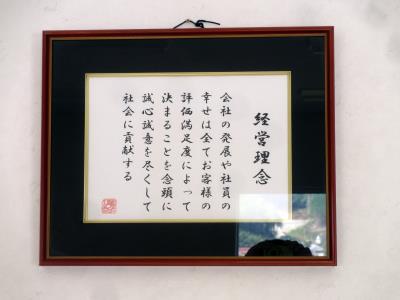 経営理念
会社の発展や社員の
幸せは全てお客様の
評価満足度によって
決まることを念頭に
誠心誠意を尽くして
社会に貢献する